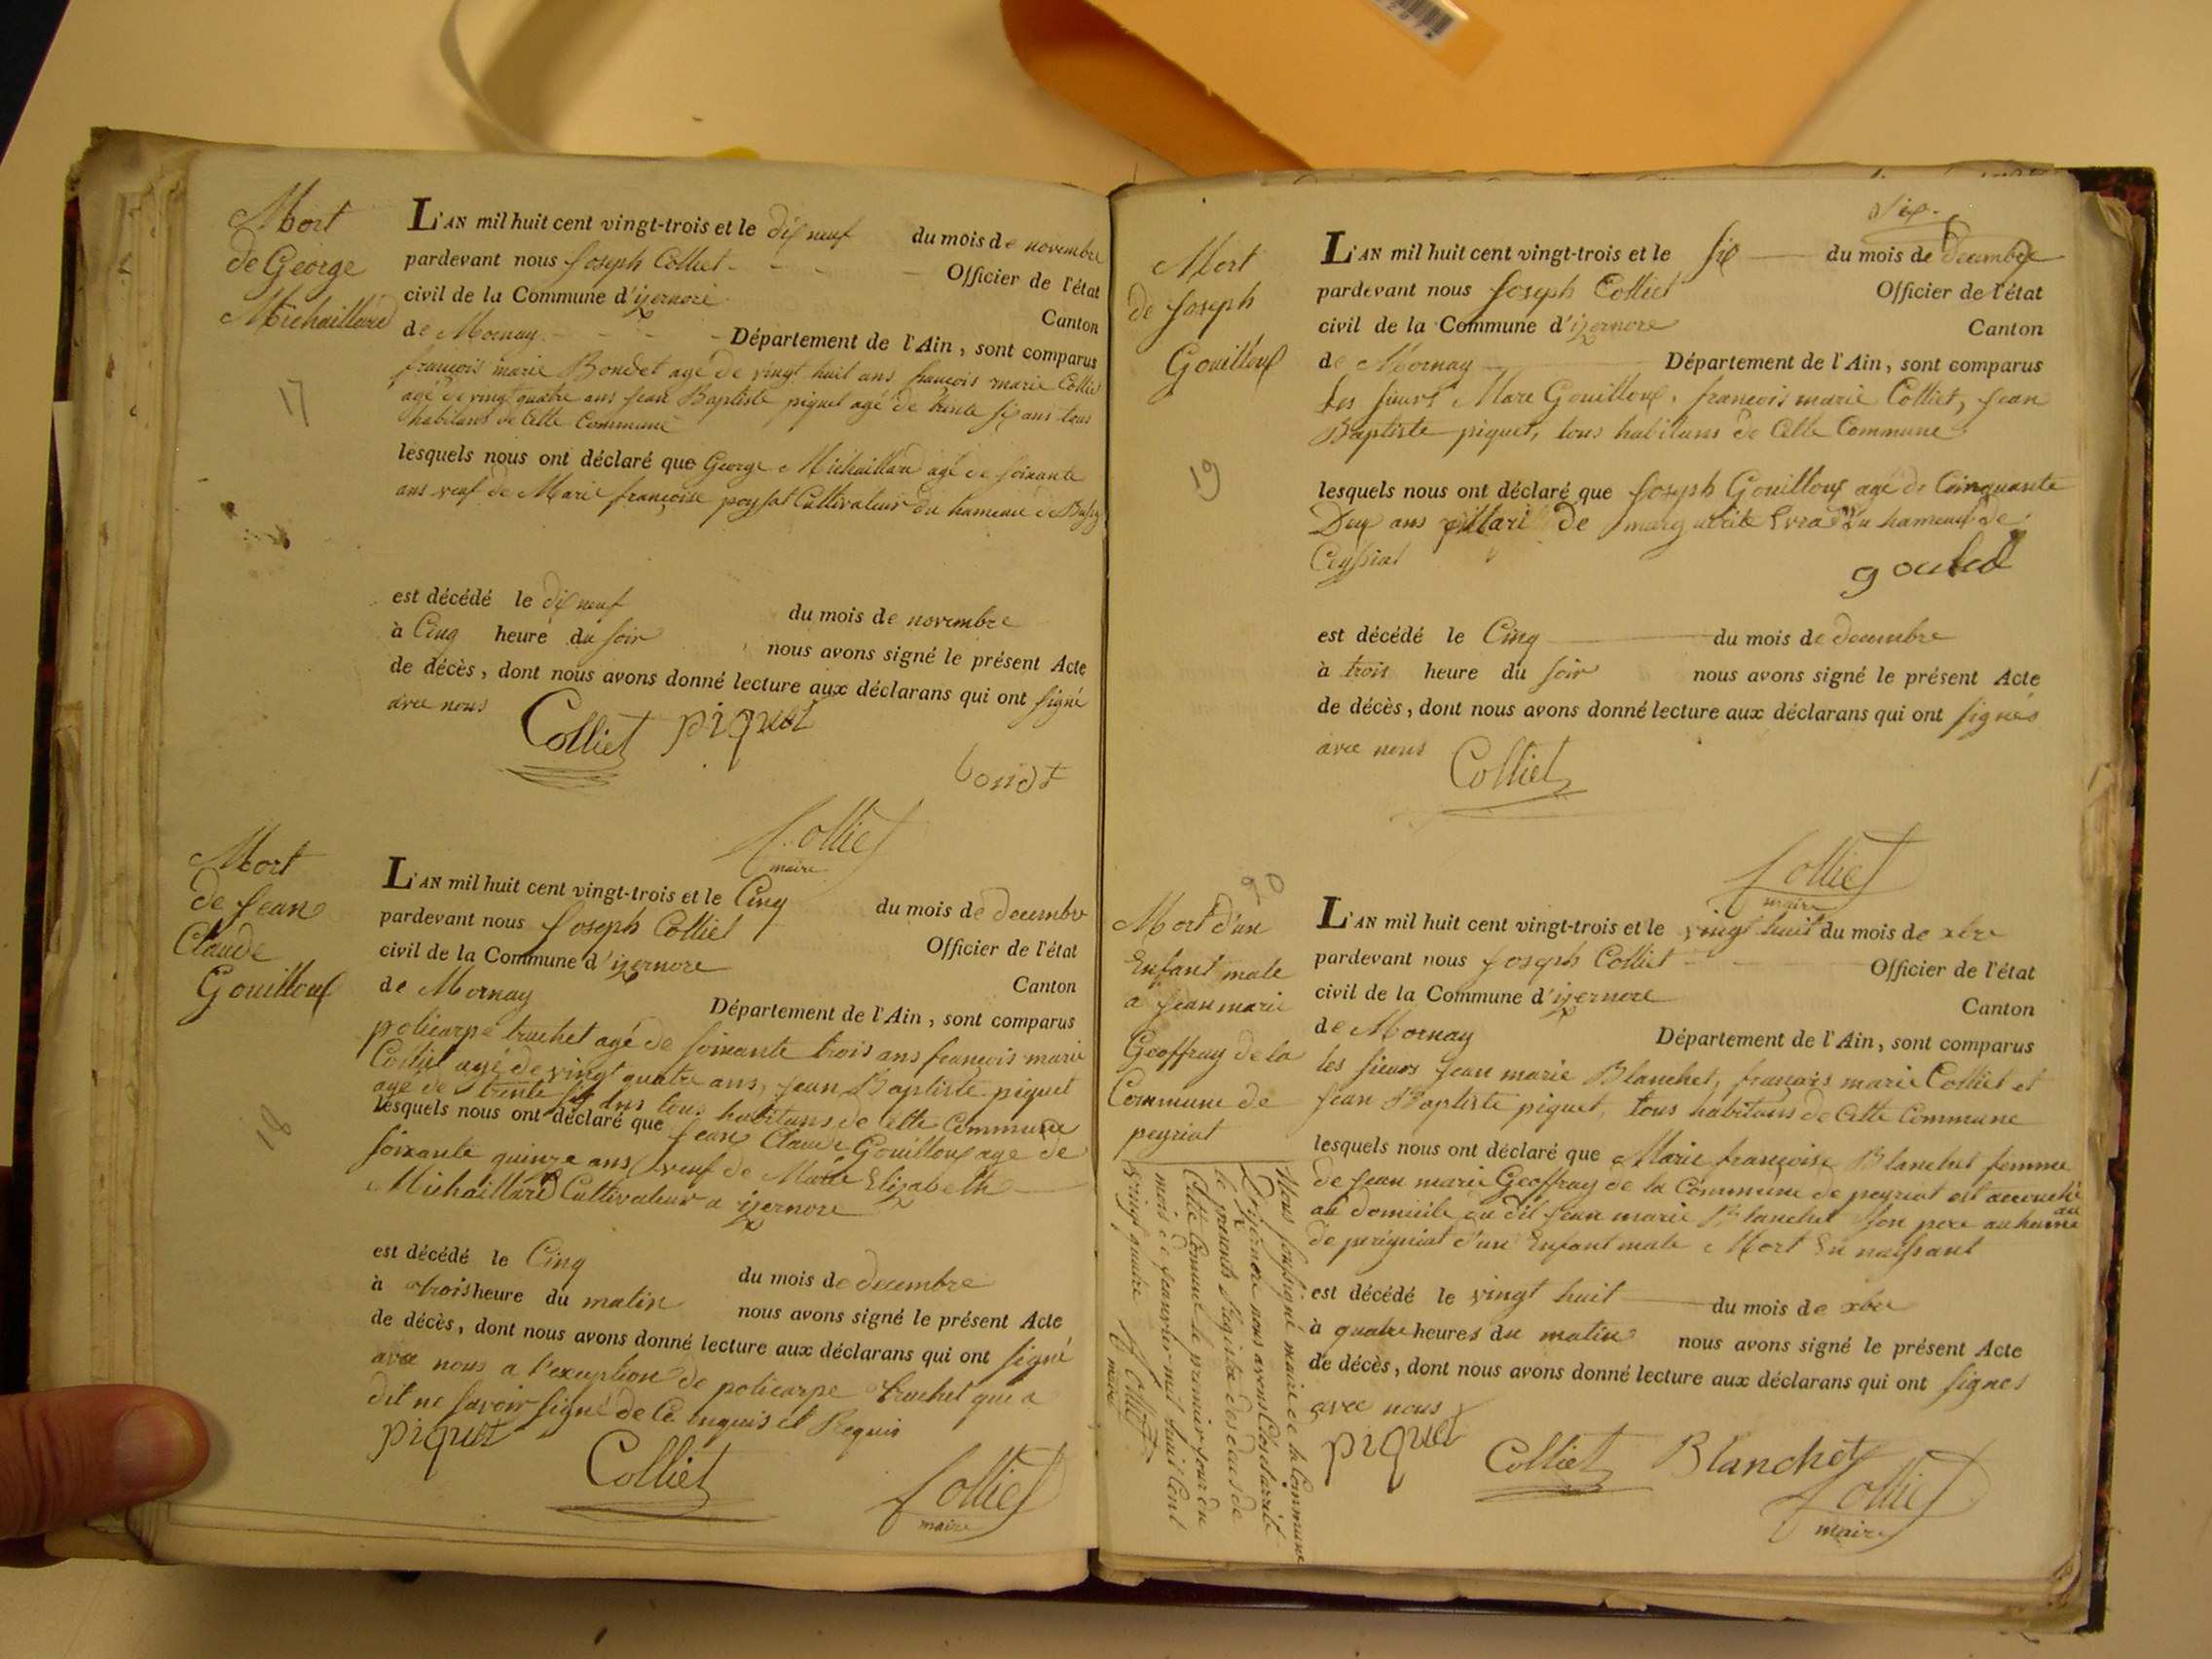 Mort
de George
Michaillard
17
L'AN mil huit cent vingt-trois et le dix neuf du mois de novembre
pardevant nous Joseph Colliet Officier de l'état
civil de la Commune d'izernore Canton
de Mornay Département de l'Ain, sont comparus
françois marie Bondet agé de vingt huit ans françois marie Colliet
agé de vingt quatre ans jean Baptiste piquet agé de trente six ans tous
habitans de Cette Commune
lesquels nous ont déclaré que George Michaillard agé de soixante
ans veuf de Marie françoise poysat Cultivateur du hameau de Bussy
est décédé le dix neuf du mois de novembre
à Cinq heure du soir nous avons signé le présent Acte
de décès, dont nous avons donné lecture aux déclarans qui ont signé
avec nous
Colliet piquet
bondt
Colliet
maire
Mort
de Jean
Claude
Gouilloux
18
L'AN mil huit cent vingt-trois et le Cinq du mois de decembre
pardevant nous Joseph Colliet Officier de l'état
civil de la Commune d'izernore Canton
de Mornay Département de l'Ain, sont comparus
policarpe truchet agé de soixante trois ans françois marie
Colliet agé de vingt quatre ans, jean Baptiste piquet
agé de trente six ans tous habitans de Cette Commune
lesquels nous ont déclaré que Jean Claude Gouilloux agé de
soixante quinze ans veuf de Marie Elizabeth
Michaillard Cultivateur a izernore
est décédé le Cinq du mois de decembre
à trois heure du matin nous avons signé le présent Acte
de décès, dont nous avons donné lecture aux déclarans qui ont signé
avec nous a l'exception de policarpe truchet qui a
dit ne savoir signé de Ce enquis et Requis
piquet
Colliet
Colliet
maire
six.
Mort
de Joseph
Gouilloux
19
L'AN mil huit cent vingt-trois et le six du mois de decembre
pardevant nous Joseph Colliet Officier de l'état
civil de la Commune d'izernore Canton
de Mornay Département de l'Ain, sont comparus
Les sieurs Marc Gouilloux, françois marie Colliet, jean
Baptiste piquet, tous habitans de Cette Commune
lesquels nous ont déclaré que Joseph Gouilloux agé de Cinquante
Deux ans de marguerite du hameau de
Ceyssiat
est décédé le Cinq du mois de decembre
à trois heure du soir nous avons signé le présent Acte
de décès, dont nous avons donné lecture aux déclarans qui ont signés
avec nous
Colliet
Colliet
maire
20
Mort d'un
Enfant male
a jean marie
Geoffray de la
Commune de
peyriat
L'AN mil huit cent vingt-trois et le vingt huit du mois de xbre
pardevant nous Joseph Colliet Officier de l'état
civil de la Commune d'izernore Canton
de Mornay Département de l'Ain, sont comparus
les sieurs jean marie Blanchet, françois marie Colliet et
jean Baptiste piquet, tous habitans de Cette Commune
lesquels nous ont déclaré que Marie françoise Blanchet femme
de jean marie Geoffray de la Commune de peyriat est accouché
au domicile du dit jean marie Blanchet son pere au hameau
de perigniat d'un Enfant male Mort En naissant
est décédé le vingt huit du mois de xbre
à quatre heures du matin nous avons signé le présent Acte
de décès, dont nous avons donné lecture aux déclarans qui ont signés
avec nous
piquet Colliet Blanchet
Colliet
maire
Nous soussigné maire de la Commune
D'izernore nous avons Clos et arrêté
le présent Registre des décès de
Cette Commune le premier jour du
mois de janvier mil huit Cent
vingt quatre Colliet
maire